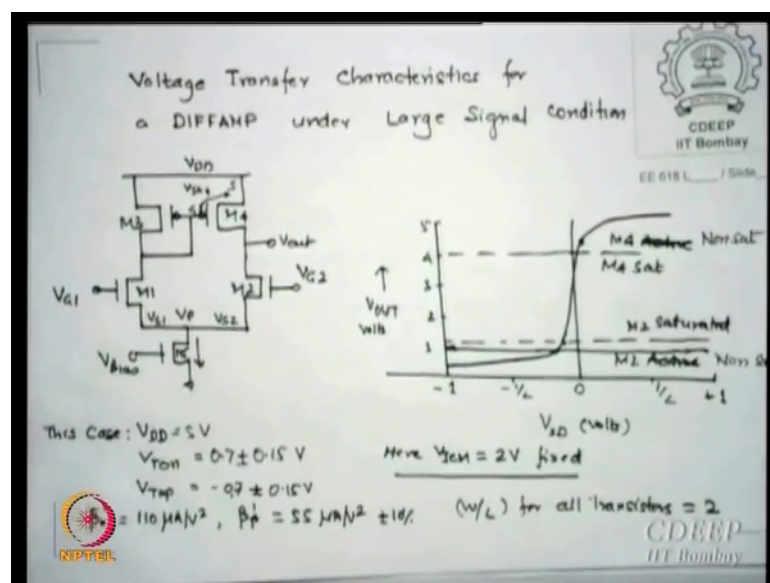 Voltage Transfer Characteristics for
a DIFFAMP under Large Signal Condition
CDEEP
IIT Bombay
EE 618 L____ / Slide_
VDD
VSG4
S
M3
M4
Vout
VG1
M1
M2
VG2
VS1 VP VS2
VBias
M5
5
4
3
2
1
VOUT
Volts
M4 Active Non sat
M4 sat
M2 Saturated
M2 Active Non s
-1 -1/2 0 1/2 +1
VID (volts)
This Case: VDD = 5V
VTon = 0.7 ± 0.15 V
VTop = -0.7 ± 0.15V
= 110 µA/V², βp' = 55 µA/V² ± 10%
Here VICM = 2V fixed
(W/L) for all transistors = 2
NPTEL
CDEEP
IIT Bombay